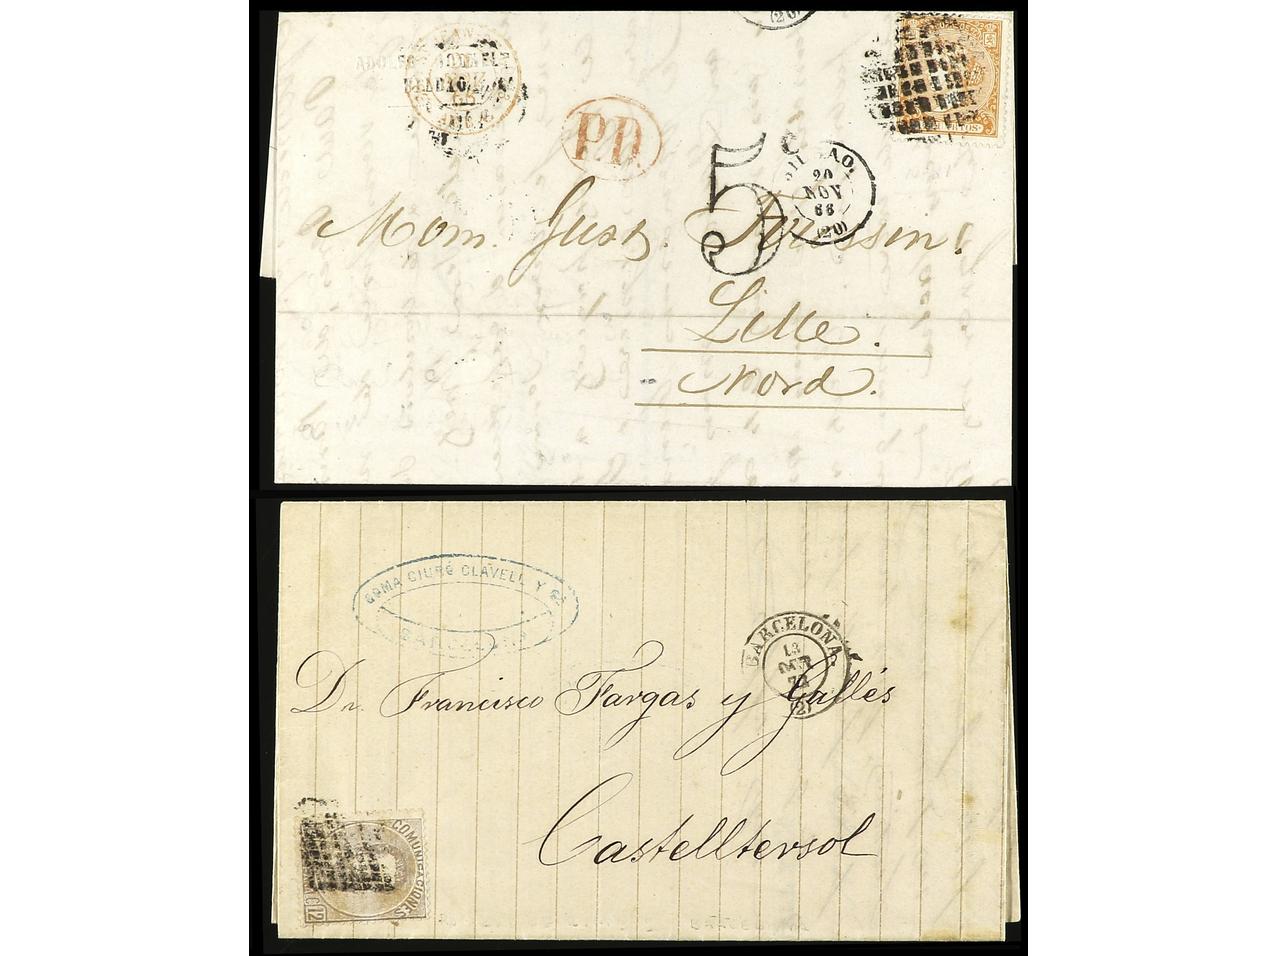 (20)
P.D.
5 C
BILBAO.
20
NOV
66
(20)
Mom. Gust.
Lille.
Nord.
COMA CIURÓ CLAVELL Y Cª
BARCELONA
BARCELONA
13
72
(2)
Dn. Francisco Fargas y Gallés
Castelltersol
COMUNICACIONES
12
BARCELONA